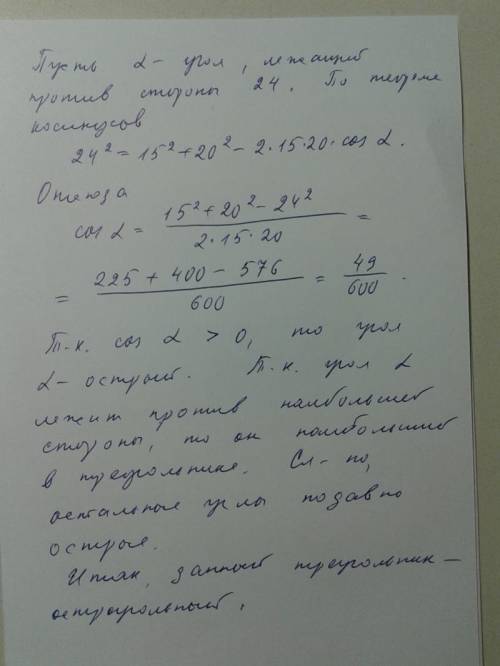 Пусть α - угол, лежащий
против стороны 24. По теореме
косинусов
24² = 15² + 20² - 2·15·20·cos α.
Отсюда
cos α = (15² + 20² - 24²) / (2·15·20) =
= (225 + 400 - 576) / 600 = 49 / 600.
Т.к. cos α > 0, то угол
α - острый. Т.к. угол α
лежит против наибольшей
стороны, то он наибольший
в треугольнике. Сл-но,
остальные углы подавно
острые.
Итак, данный треугольник -
остроугольный.